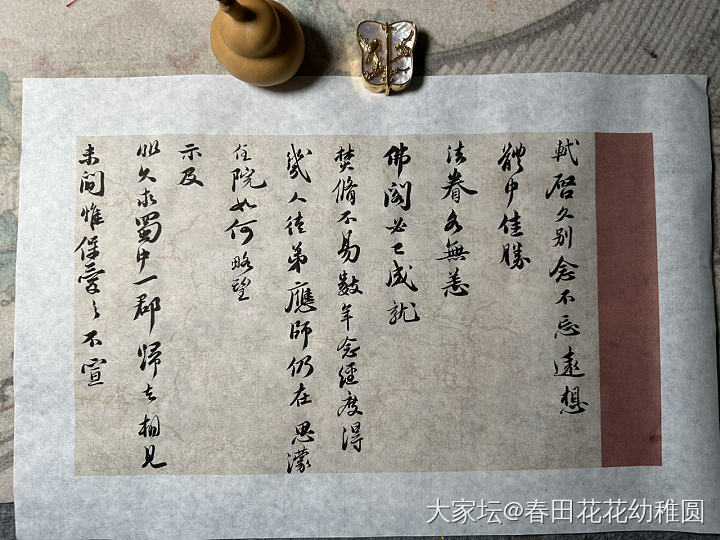 軾啓久别念不忘遠想
體中佳勝
法眷各無恙
佛閣必已成就
焚脩不易數年念經度得
幾人徒弟應師仍在思濛
住院如何略望
示及
甥久求蜀中一郡歸去相見
未間惟保愛之不宣
大家坛@春田花花幼稚圆